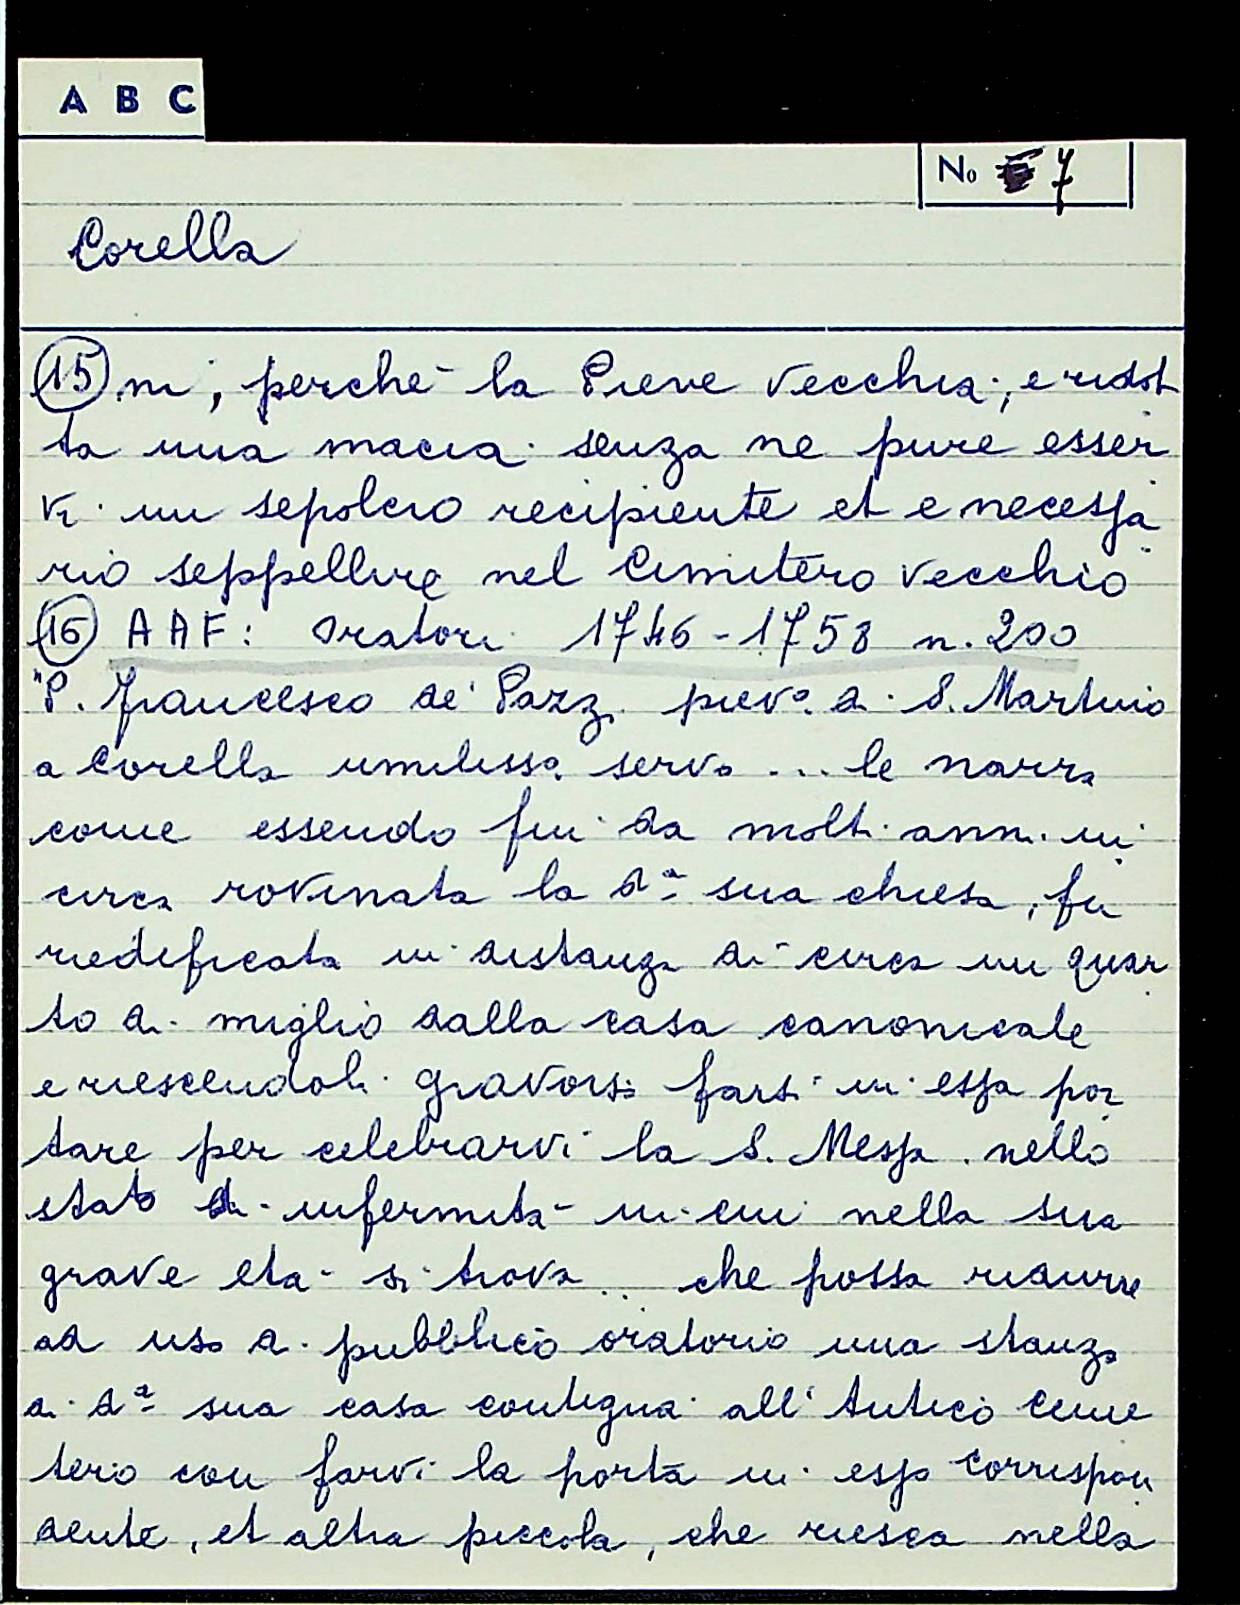 A B C
No 7
Corella
15 ni, perchè la Pieve Vecchia; e ridot
ta una macia senza ne pure esser
vi un sepolcro recipiente et e necessa
rio seppellire nel Cimitero Vecchio"
16 AAF: Oratori 1746-1758 n. 200
"P. Francesco de' Pazzi piev° di S. Martino
a Corella umiliss° servo ... le narra
come essendo fin da molti anni in
circa rovinata la dª sua chiesa, fu
riedificata in distanza di circa un quar
to di miglio dalla casa canonicale
e riescendoli gravoso farsi in essa por
tare per celebrarvi la S. Messa nello
stato di infermità in cui nella sua
grave età si trova ... che possa ridurre
ad uso di pubblico oratorio una stanza
di dª sua casa contigua all'Antico Cime
terio con farvi la porta in esso corrispon
dente, et altra piccola, che riesca nella